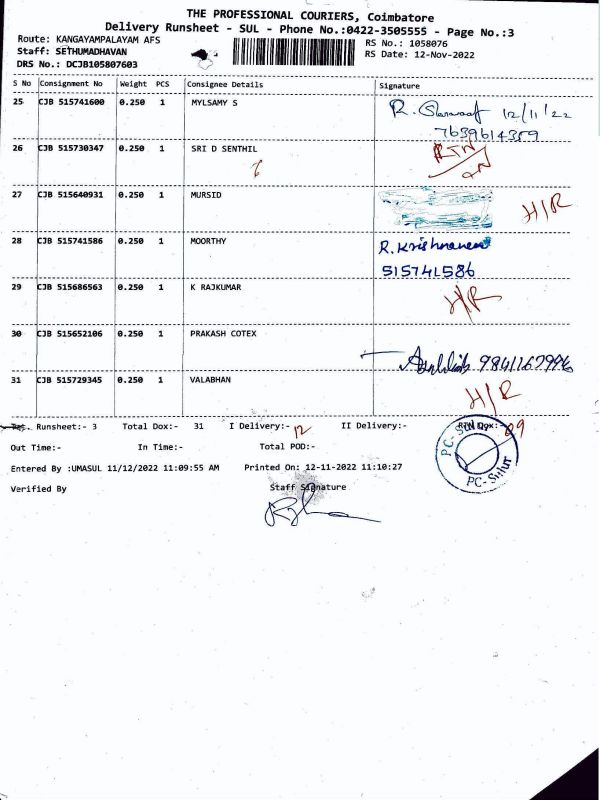 THE PROFESSIONAL COURIERS, Coimbatore
Delivery Runsheet - SUL - Phone No.:0422-3505555 - Page No.:3
Route: KANGAYAMPALAYAM AFS RS No.: 1058076
Staff: SETHUMADHAVAN RS Date: 12-Nov-2022
DRS No.: DCJB105807603
S No Consignment No Weight PCS Consignee Details Signature
25 CJB 515741600 0.250 1 MYLSAMY S R. 12/11/22
7639614359
26 CJB 515730347 0.250 1 SRI D SENTHIL
27 CJB 515640931 0.250 1 MURSID H/R
28 CJB 515741586 0.250 1 MOORTHY R. Krishnaveni
515741586
29 CJB 515686563 0.250 1 K RAJKUMAR H/R
30 CJB 515652106 0.250 1 PRAKASH COTEX
9841167996
31 CJB 515729345 0.250 1 VALABHAN H/R
Tot. Runsheet:- 3 Total Dox:- 31 I Delivery:- 12 II Delivery:- RTN Dox:- 09
Out Time:- In Time:- Total POD:-
Entered By :UMASUL 11/12/2022 11:09:55 AM Printed On: 12-11-2022 11:10:27
Verified By Staff Signature
PC-Sulur
PC-Sulur